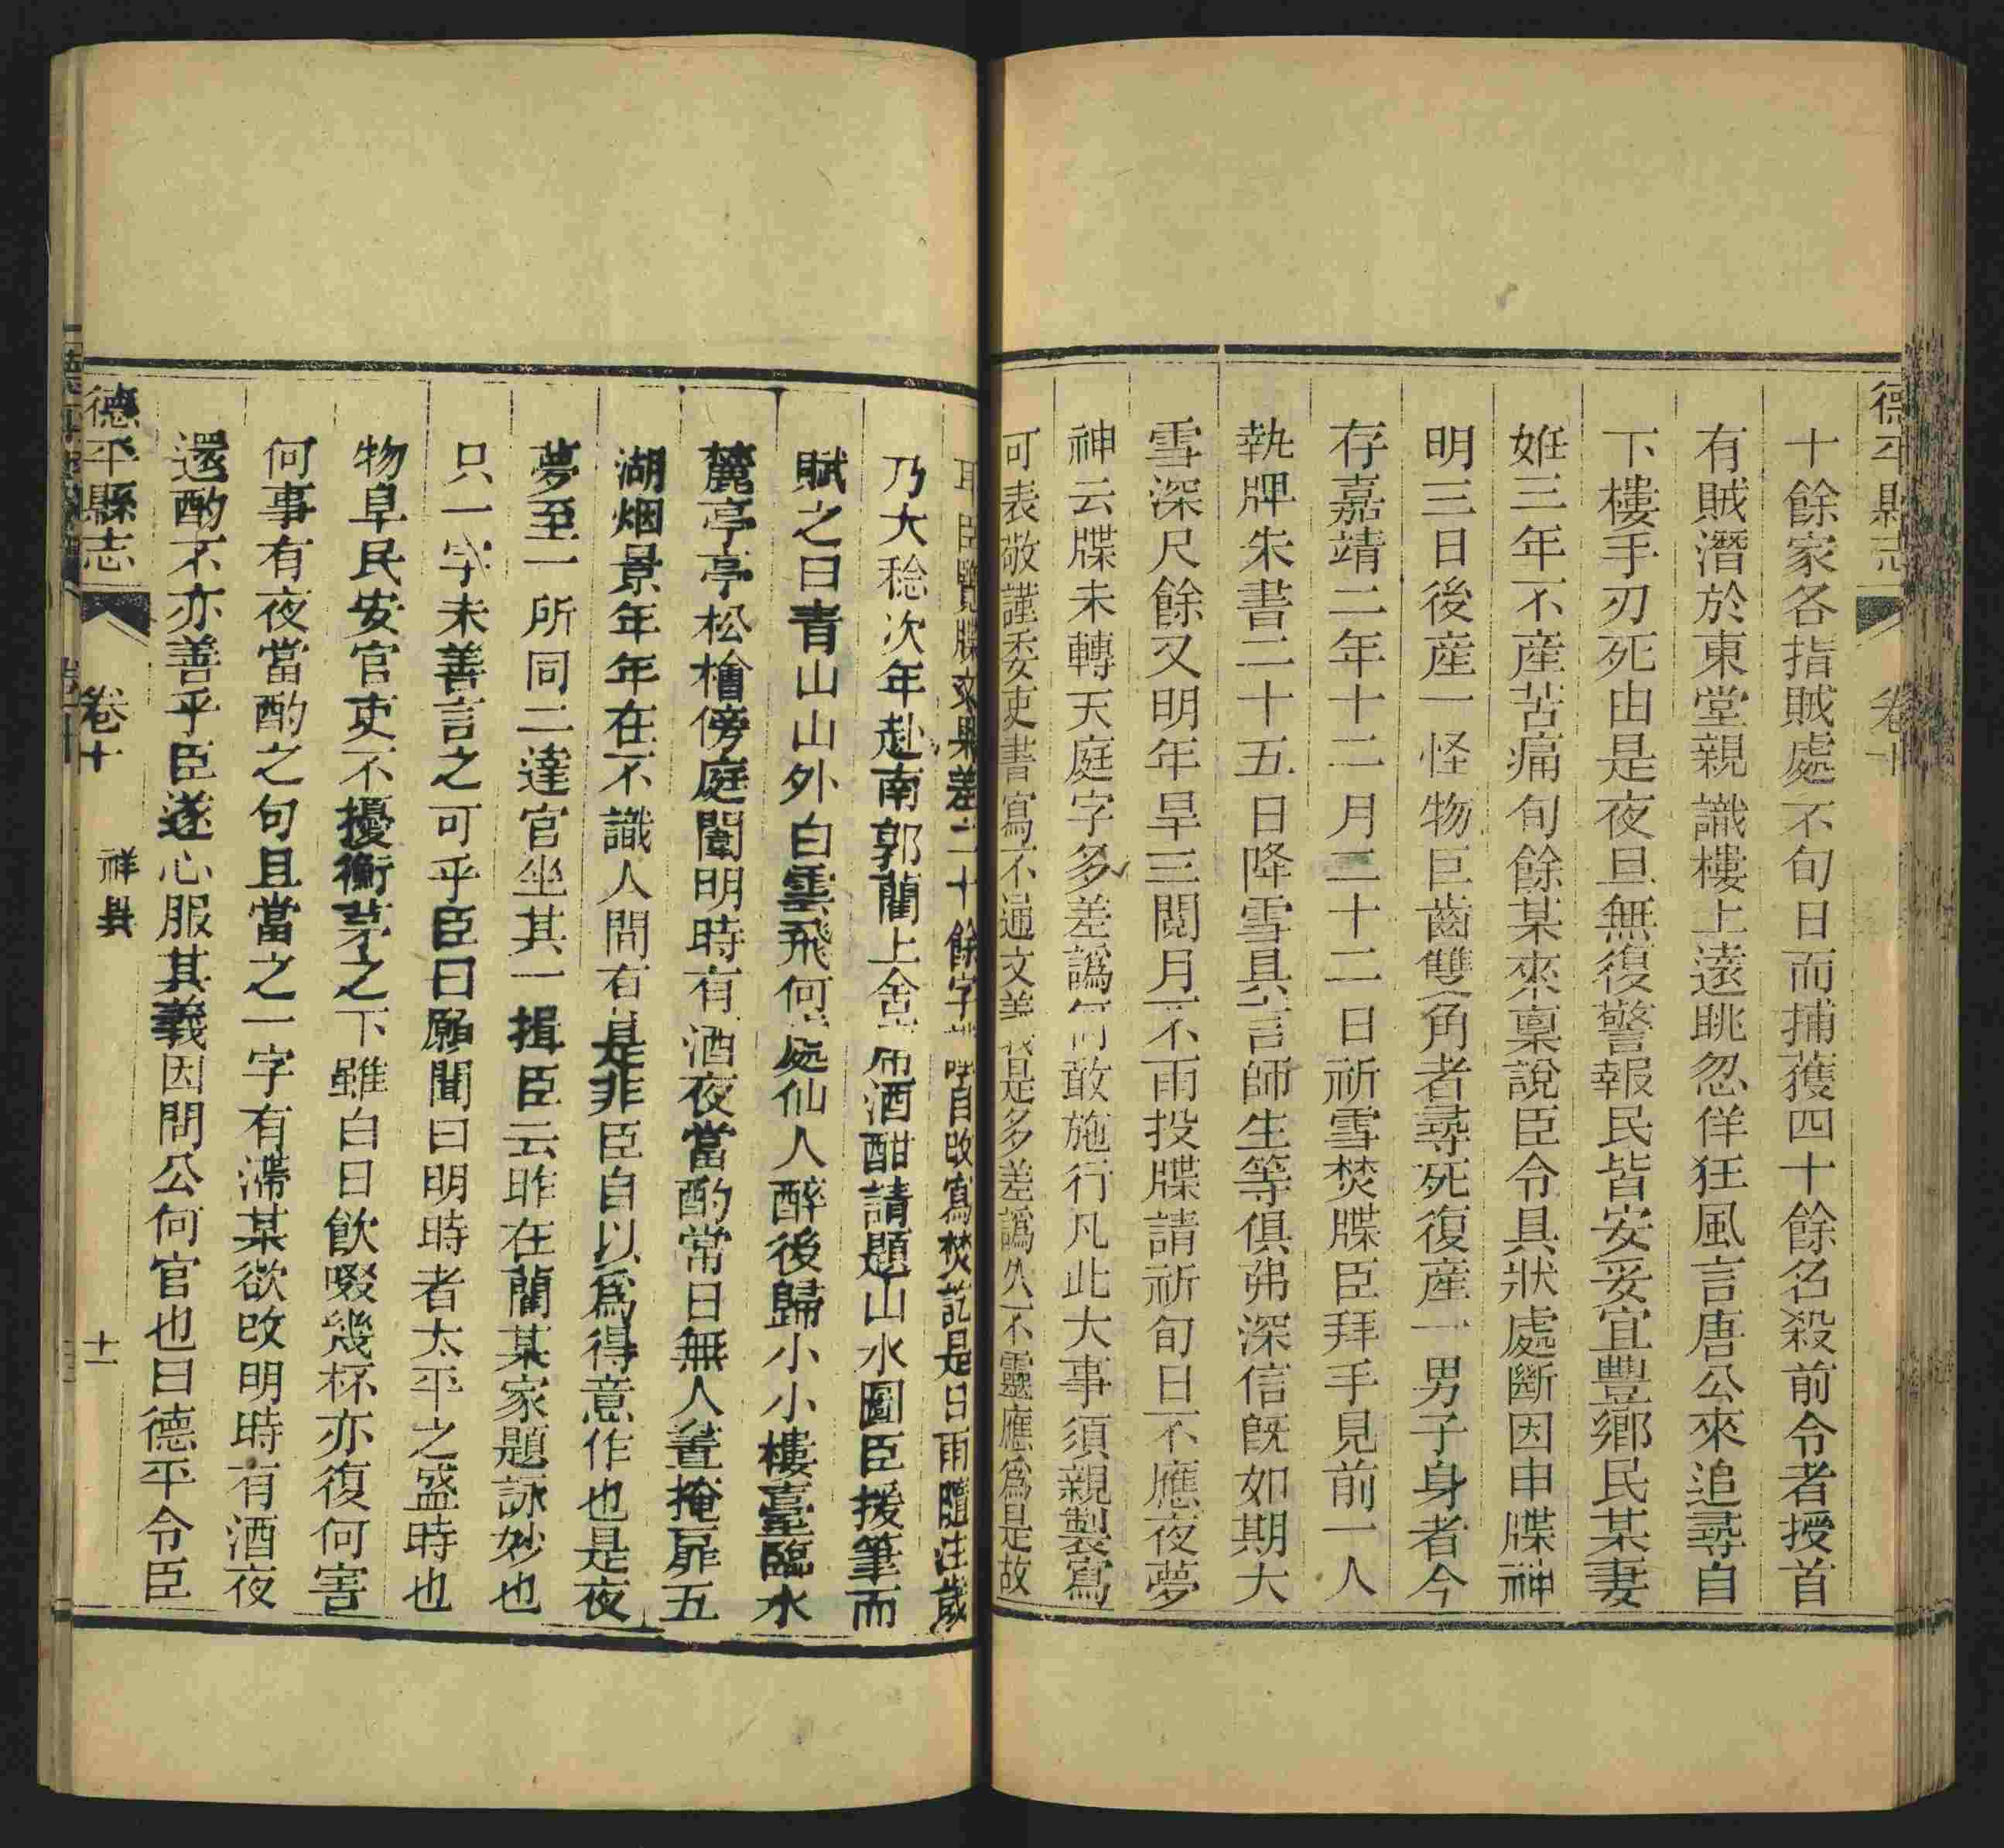 德平縣志
卷十
十餘家各指賊處不旬日而捕獲四十餘名殺前令者授首
有賊潛於東堂親識樓上遠眺忽佯狂風言唐公來追尋自
下樓手刃死由是夜旦無復警報民皆安妥宜豐鄉民某妻
姙三年不產苦痛旬餘某來稟說臣令具狀處斷因申牒神
明三日後産一怪物巨齒雙角者尋死復產一男子身者今
存嘉靖二年十二月二十二日祈雪焚牒臣拜手見前一人
執牌朱書二十五日降雪具言師生等俱弗深信旣如期大
雪深尺餘又明年旱三閱月不雨投牒請祈旬日不應夜夢
神云牒未轉天庭字多差譌何敢施行凡此大事須親製寫
可表敬謹委吏書寫不通文義是多差譌久不靈應爲是故
耳臣覽牒文果差二十餘字 自改寫焚訖是日雨隨注歲
乃大稔次年赴南郭藺上舍 酒酣請題山水圖臣援筆而
賦之曰青山山外白雲飛何處仙人醉後歸小小樓臺臨水
麓亭亭松檜傍庭闈明時有酒夜當酌常日無人晝掩扉五
湖烟景年年在不識人間有是非臣自以爲得意作也是夜
夢至一所同二達官坐其一揖臣云昨在藺某家題詠妙也
只一字未善言之可乎臣曰願聞曰明時者太平之盛時也
物阜民安官吏不擾衡茅之下雖白日飲啜幾杯亦復何害
何事有夜當酌之句且當之一字有滯某欲改明時有酒夜
還酌不亦善乎臣遂心服其義因問公何官也曰德平令臣
德平縣志
卷十
祥異
十一